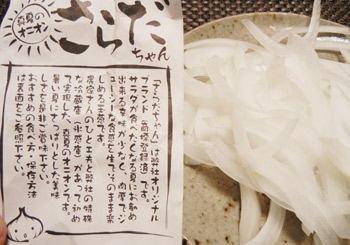 真夏の
オニオン
さらだ
ちゃん
「さらだちゃん」は弊社オリジナル
ブランド（商標登録済）です。
サラダが食べたくなる夏にお勧め
出来る辛味が少なく、肉厚でジ
ューシーな食感を生でそのまま楽
しめる玉葱です。
農家さんのひと工夫と弊社の特殊
な冷蔵庫（氷感庫）があって初め
て実現した、真夏のオニオンです。
暑い夏にさっぱりとした美味
しさを是非ご賞味下さい。
おすすめの食べ方・保存方法
は裏面をご参照下さい。